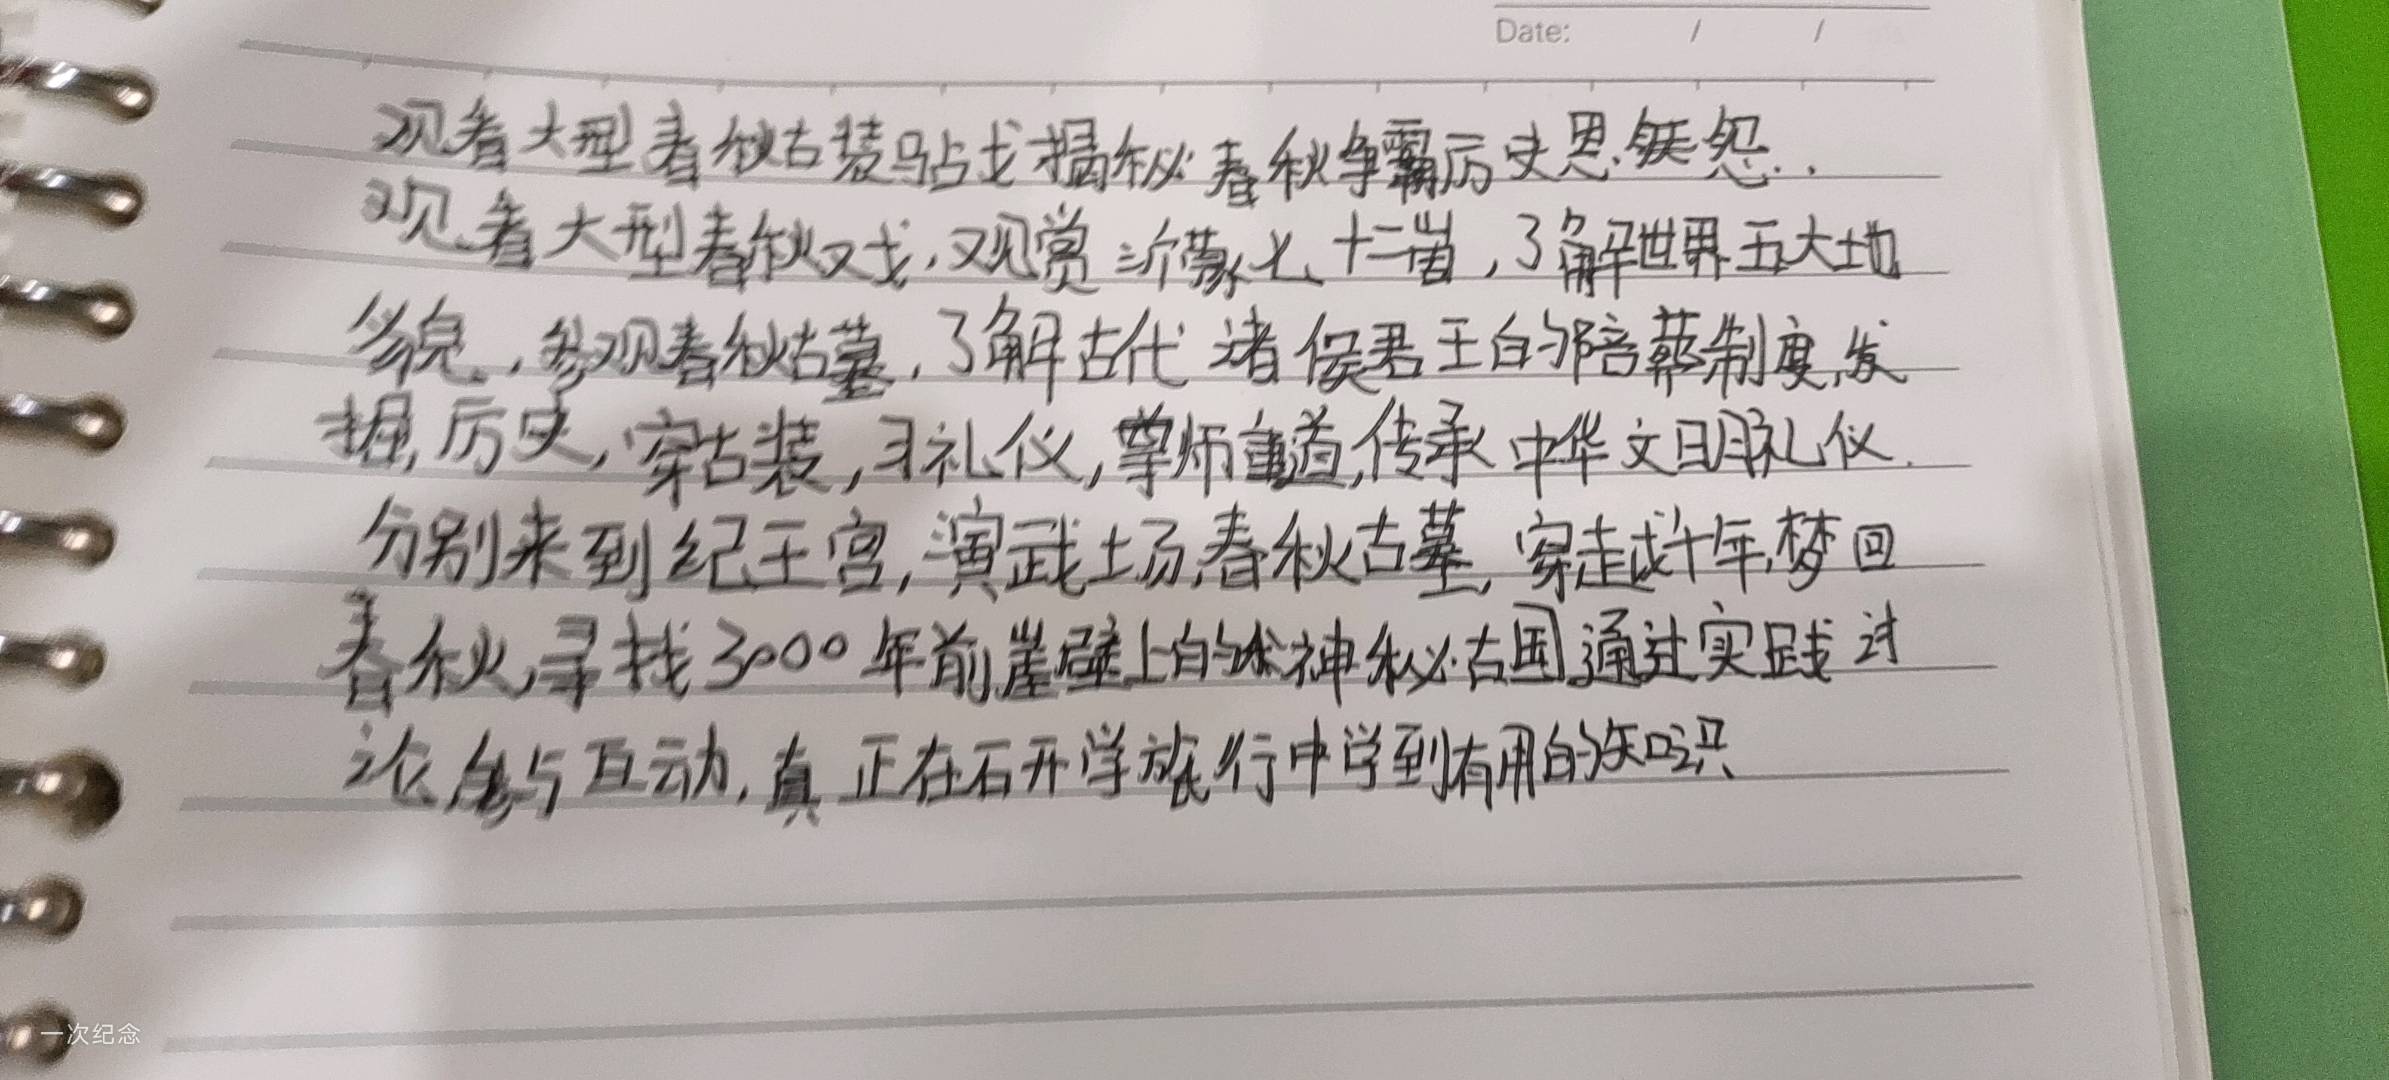 Date: / /
观看大型春秋古装马战揭秘春秋争霸历史恩怨..
观看大型春秋戏,观赏沂蒙七十二崮,了解世界五大地
貌.,参观春秋古墓,了解古代诸侯君王的陪葬制度,发
掘,历史,穿古装,习礼仪,尊师重道,传承中华文明礼仪.
分别来到纪王宫,演武场,春秋古墓,穿越千年,梦回
春秋,寻找3000年前崖壁上的神秘古国通过实践讨
论参与互动,真正在研学旅行中学到有用的知识
一次纪念